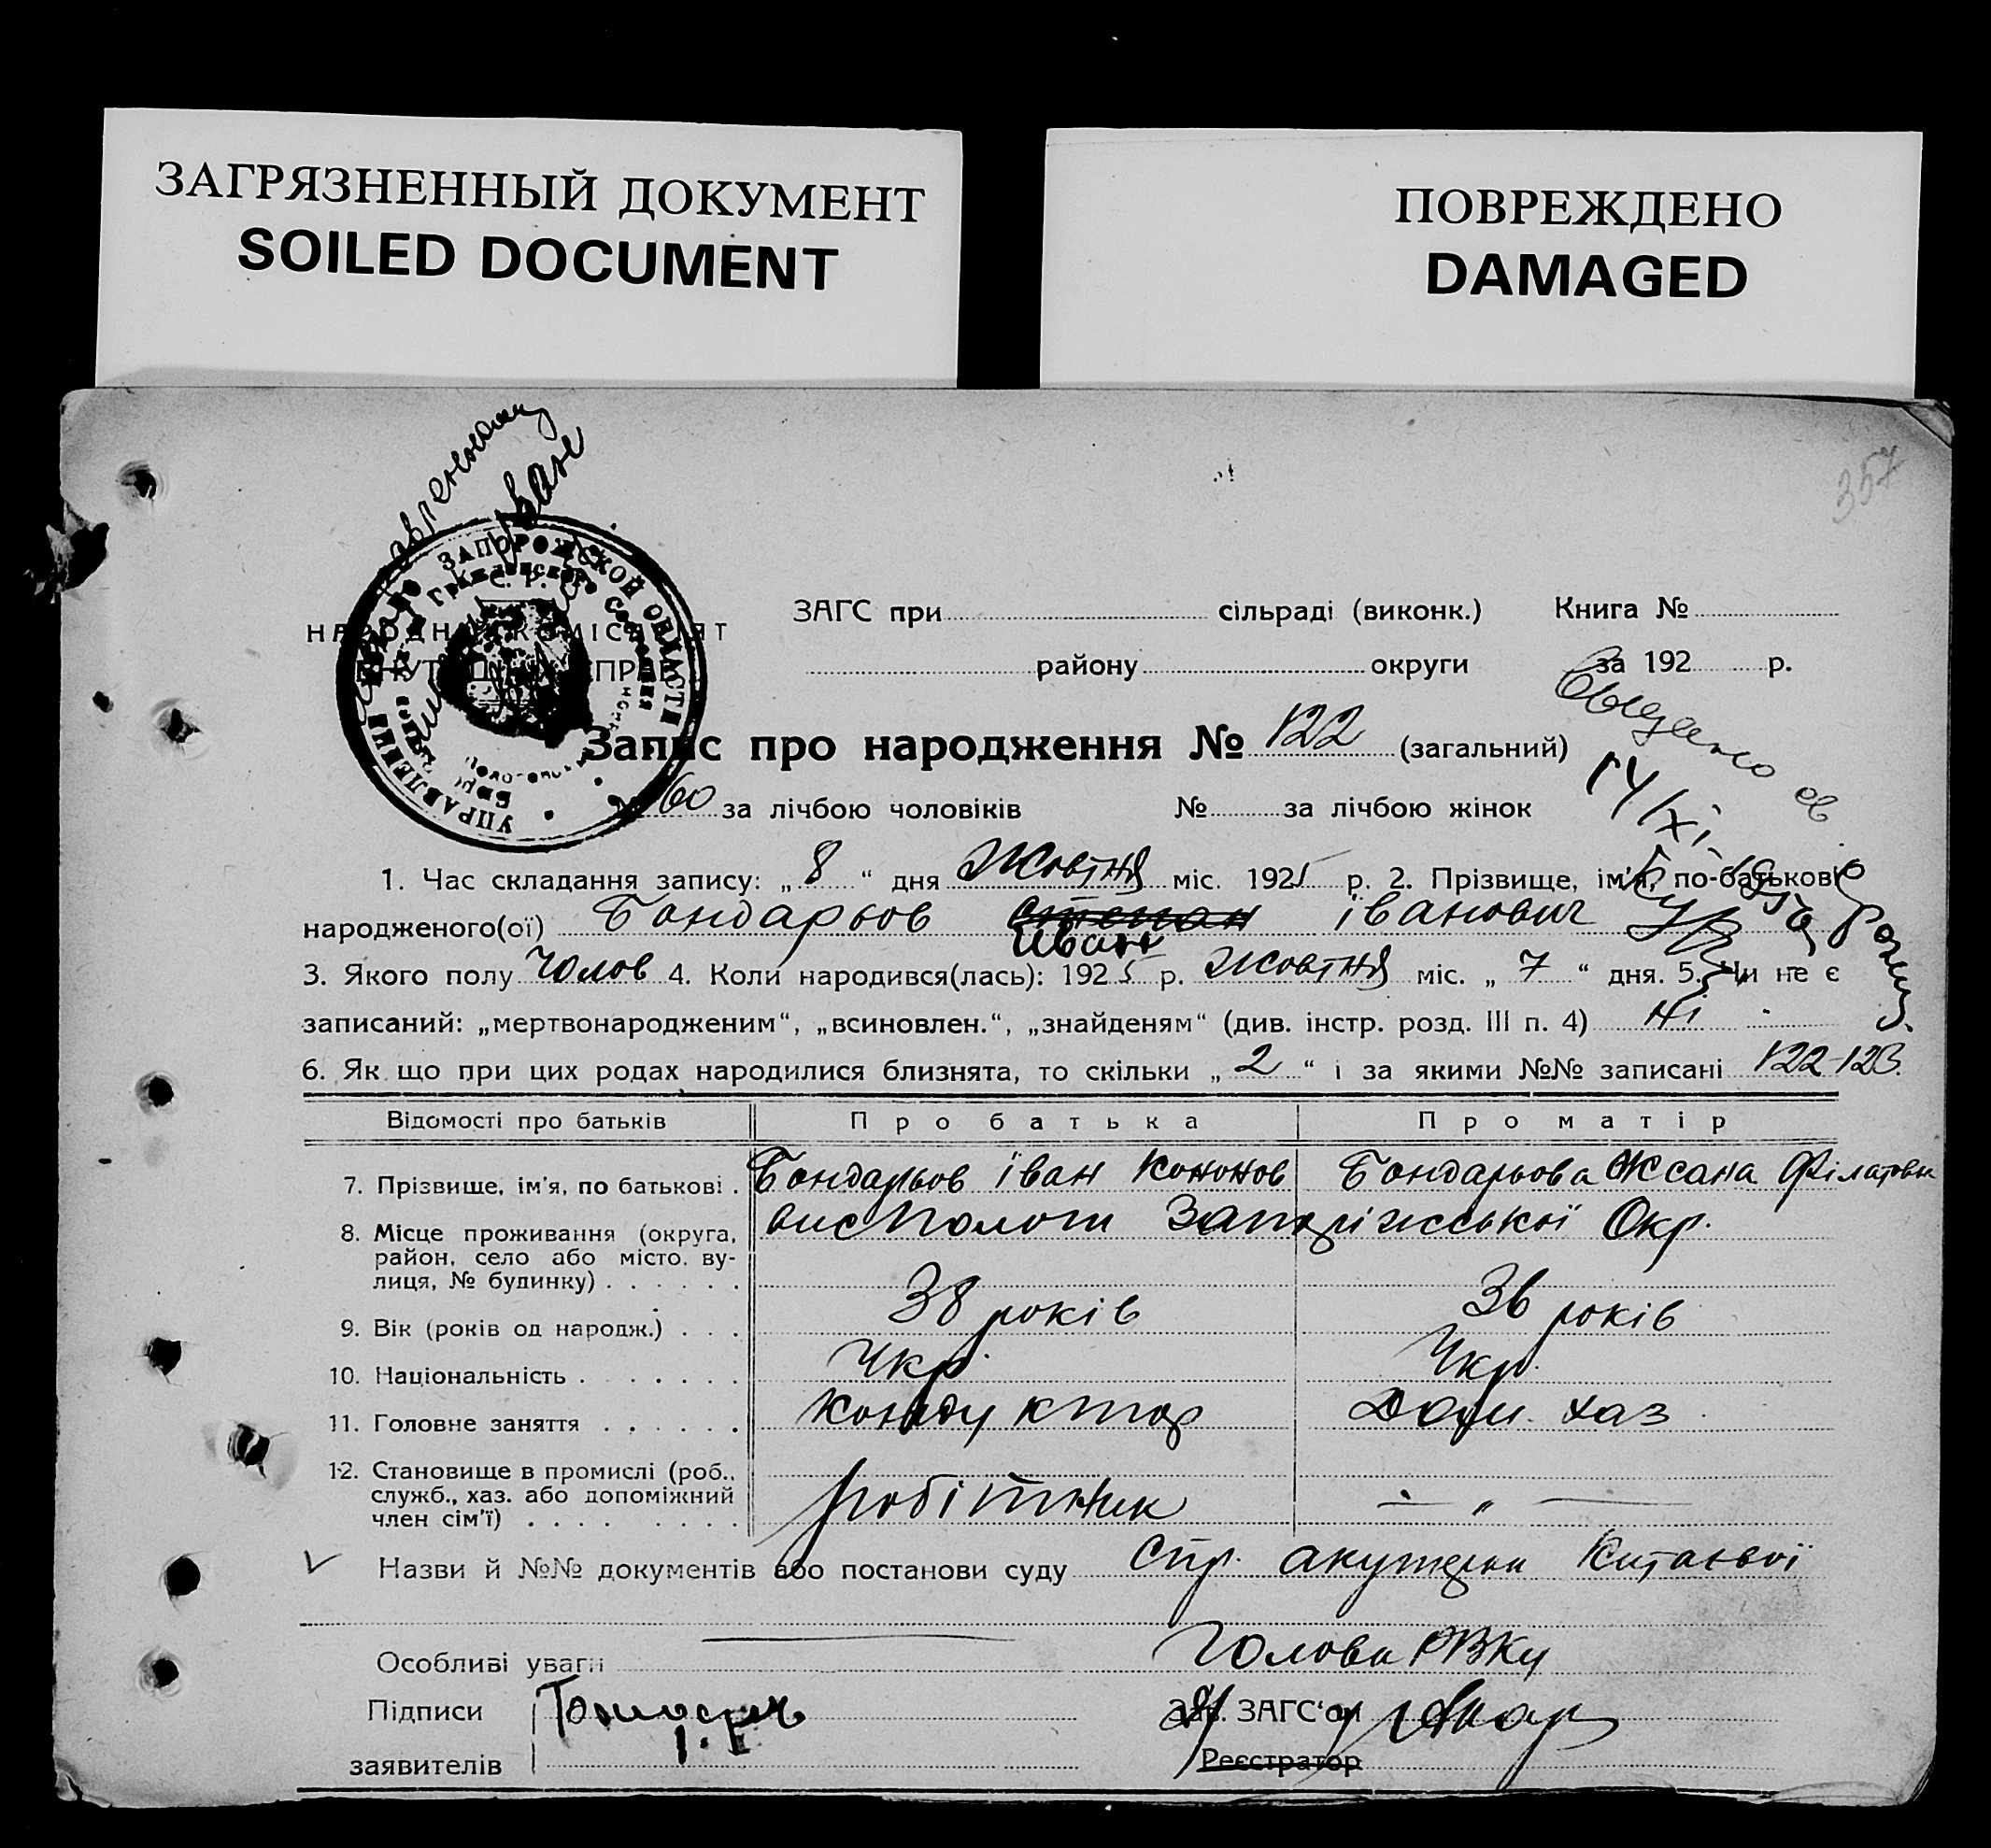 ЗАГРЯЗНЕННЫЙ ДОКУМЕНТ
SOILED DOCUMENT
ПОВРЕЖДЕНО
DAMAGED
357
Иван
УПРАВЛЕНИЯ ЗАПОРОЖСКОЙ ОБЛАСТИ
ЗАГС при сільраді (виконк.) Книга №
району округи за 192 р.
Запис про народження № 122 (загальний)
№ 60 за лічбою чоловіків № за лічбою жінок
14/XI
1. Час складання запису: „ 8 “ дня Жовтня міс. 1925 р. 2. Прізвище, ім'я, по-батькові
народженого(ої) Бондарьов Степан Іванович
Иван
3. Якого полу Чолов 4. Коли народився(лась): 1925 р. Жовтня міс. „ 7 “ дня. 5. Чи не є
записаний: „мертвонародженим“, „всиновлен.“, „знайденям“ (див. інстр. розд. III п. 4) Ні
6. Як що при цих родах народилися близнята, то скільки „ 2 “ і за якими №№ записані 122-123.
Відомості про батьків Про батька Про матір
7. Прізвище, ім'я, по батькові . Бондарьов Іван Кононов Бондарьова Оксана Філатовн
8. Місце проживання (округа, Пологи Запоріжської Окр.
район, село або місто, ву-
лиця, № будинку) . . . . . .
9. Вік (років од народж.) . . . 38 років 36 років
10. Національність . . . . . . . Укр. Укр.
11. Головне заняття . . . . . . Кондуктор Дом. хаз
12. Становище в промислі (роб.,
служб., хаз. або допоміжний робітник — „ —
член сім'ї) . . . . . . . .
Назви й №№ документів або постанови суду Спр. акушерки
Особливі уваги Голова РВКу
Підписи Зав. ЗАГС'ом
заявителів Реєстратор